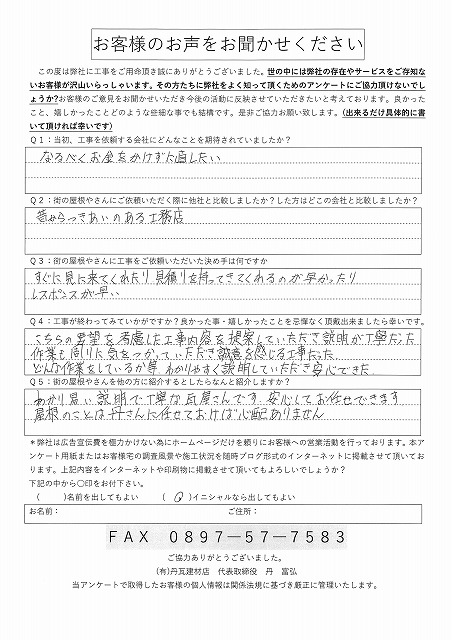 お客様のお声をお聞かせください
この度は弊社に工事をご用命頂き誠にありがとうございました。世の中には弊社の存在やサービスをご存知な
いお客様が沢山いらっしゃいます。その方たちに弊社をよく知って頂くためのアンケートにご協力頂けないでし
ょうか?お客様のご意見をお聞かせいただき今後の活動に反映させていただきたいと考えております。良かった
こと、嬉しかったことどのような些細な事でも結構です。是非ご協力お願い致します。(出来るだけ具体的に書
いて頂ければ幸いです)
Q1:当初、工事を依頼する会社にどんなことを期待されていましたか?
なるべくお金をかけず直したい
Q2:街の屋根やさんにご依頼いただく際に他社と比較しましたか?した方はどこの会社と比較しましたか?
昔からつきあいのある工務店
Q3:街の屋根やさんに工事をご依頼いただいた決め手は何ですか
すぐに見に来てくれたり見積りを持ってきてくれるのが早かったり
レスポンスが早い
Q4:工事が終わってみていかがですか?良かった事・嬉しかったことを忌憚なく頂戴出来ましたら幸いです。
こちらの要望を考慮した工事内容を提案していただき説明が丁寧だった
作業も周りに気をつかっていただき誠意を感じる工事だった
どんな作業をしているか等 わかりやすく説明していただき安心できた
Q5:街の屋根やさんを他の方に紹介するとしたらなんと紹介しますか?
わかり易い説明で丁寧な瓦屋さんです。安心してお任せできます
屋根のことは丹さんに任せておけば心配ありません
*弊社は広告宣伝費を極力かけない為にホームページだけを頼りにお客様への営業活動を行っております。本ア
ンケート用紙またはお客様宅の調査風景や施工状況を随時ブログ形式のインターネットに掲載させて頂いてお
ります。上記内容をインターネットや印刷物に掲載させて頂いてもよろしいでしょうか?
下記の中から〇印をお付下さい。
( )名前を出してもよい (〇)イニシャルなら出してもよい
お名前: ご住所:
FAX 0897-57-7583
ご協力ありがとうございました。
(有)丹瓦建材店 代表取締役 丹 富弘
当アンケートで取得したお客様の個人情報は関係法規に基づき厳正に管理いたします。